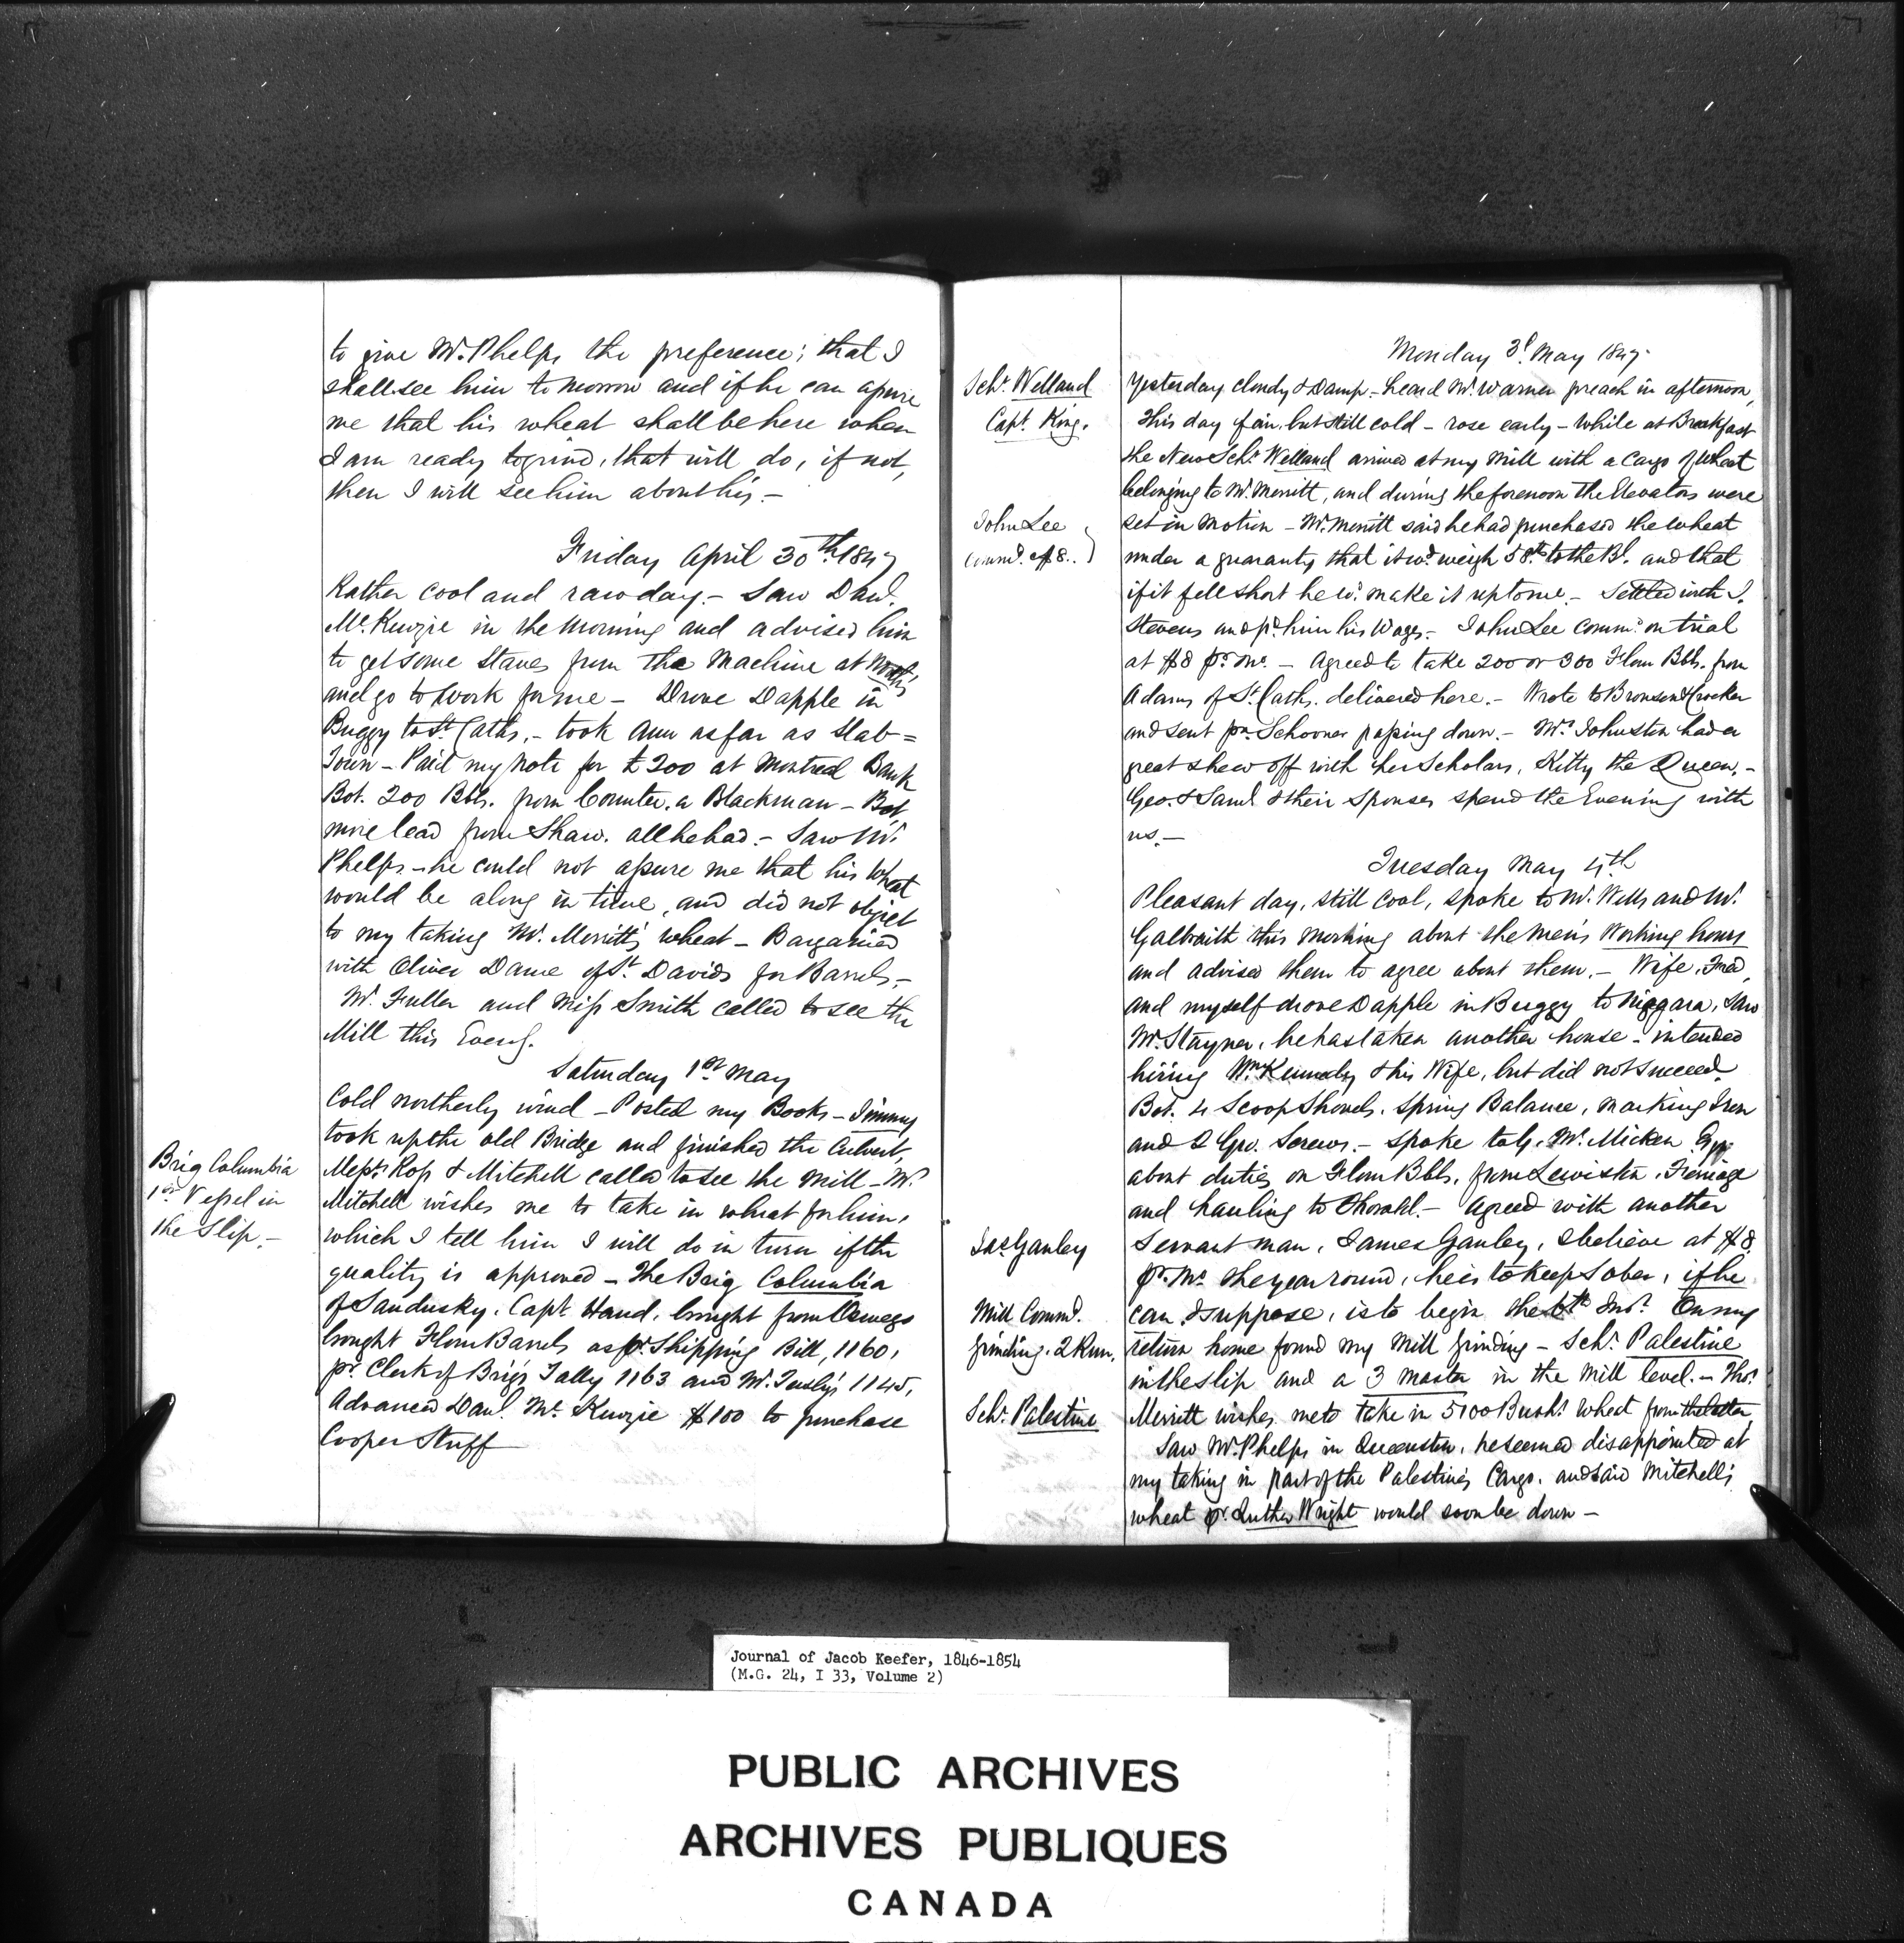 to give Mr. Phelps the preference; that I
shall see him tomorrow and if he can assure
me that his wheat shall be here when
I am ready to grind, that will do, if not,
then I will see him about his -
Friday April 30th 1847
Rather cool and raw day. - Saw Danl.
McKenzie in the morning and advised him
to get some Staves from the Machine at
and go to work for me - Drove Dapple in
Buggy to St. Caths. - took Ann as far as Slab =
Town - Paid my Note for £200 at Montreal Bank
Bot. 200 Bbls. from Counter. a Blackman - Bot.
more lead from Shaw. all he had. - Saw Mr.
Phelps - he could not assure me that his Wheat
would be along in time, and did not object
to my taking Mr. Merritt's wheat - Bargained
with Oliver Dame of St. Davids for Barrels. -
Mr. Fuller and Miss Smith called to see the
Mill this Eveng.
Saturday 1st May
Brig Columbia
1st Vessel in
the Slip. -
Cold northerly wind - Posted my Books - Jimmy
took up the old Bridge and finished the Culvert,
Messrs Ross & Mitchell called to see the Mill - Mr.
Mitchell wishes me to take in wheat for him,
which I tell him I will do in turn if the
quality is approved - The Brig Columbia
of Sandusky. Capt. Hand, bright from Oswego
brought Flour Barrels as pr. Shipping Bill, 1160,
pr. Clerk of Brig's Tally 1163 and Mr. 1145,
Advanced Danl. McKenzie $100 to purchase
Cooper Stuff
Monday 3d May 1847.
Schr. Welland
Capt. King.
Yesterday cloudy & Damp. - heard Mr. Warner preach in afternoon,
This day fair, but still cold - rose early - while at Breakfast
the New Schr. Welland arrived at my Mill with a Cargo of Wheat
belonging to Mr. Merritt, and during the forenoon the Elevators were
John Lee
Commd. at $8..
set in Motion - Mr. Merritt said he had purchased the wheat
under a guaranty that it wd. weigh 58 lb to the Bl. and that
if it fell short he wd. make it up to me. - Settled with J.
Stevens and pd. him his Wages. - John Lee commd. on trial
at $8 pr. Mo. - Agreed to take 200 or 300 Flour Bbls. from
Adams of St. Caths. delivered here. - Wrote to Bronson & Crocker
and sent pr. Schooner passing down. - Mrs. Johnston had a
great shew off with her Scholars, Kitty the Queen. -
Geo. & Saml. & their Spouses spend the Evening with
us. -
Tuesday May 4th
Pleasant day, still cool, spoke to Mr. Wells and Mr.
Galbraith this morning about the men's Working hours
and advised them to agree about them. - Wife, Fred,
and myself drove Dapple in Buggy to Niagara, saw
Mr. Stayner, he has taken another house - intended
hiring Wm. Kennedy & his Wife, but did not succeed.
Bot. 4 Scoop Shovels, Spring Balance, Marking Iron
and 2 Gro. Screws. - spoke to G. McMicken Esqr.
about duties on Flour Bbls. from Lewiston, Ferriage
and hauling to Thorold. - Agreed with another
Jas. Ganley
Servant man, James Ganley, I believe at $8
pr. Mo. the year round, he is to keep Sober, if he
Mill Commd.
grinding. 2 Run.
can I suppose, is to begin the 6th Inst. On my
return home found my Mill grinding - Schr. Palestine
in the slip and a 3 master in the Mill level. - Thos.
Schr. Palestine
Merritt wishes me to take in 5100 Bushs. Wheat from the latter,
Saw Mr. Phelps in Queenston, he seemed disappointed at
my taking in part of the Palestine's Cargo. and said Mitchell's
wheat pr. Luther Wright would soon be down -
Journal of Jacob Keefer, 1846-1854
(M.G. 24, I 33, Volume 2)
PUBLIC ARCHIVES
ARCHIVES PUBLIQUES
CANADA